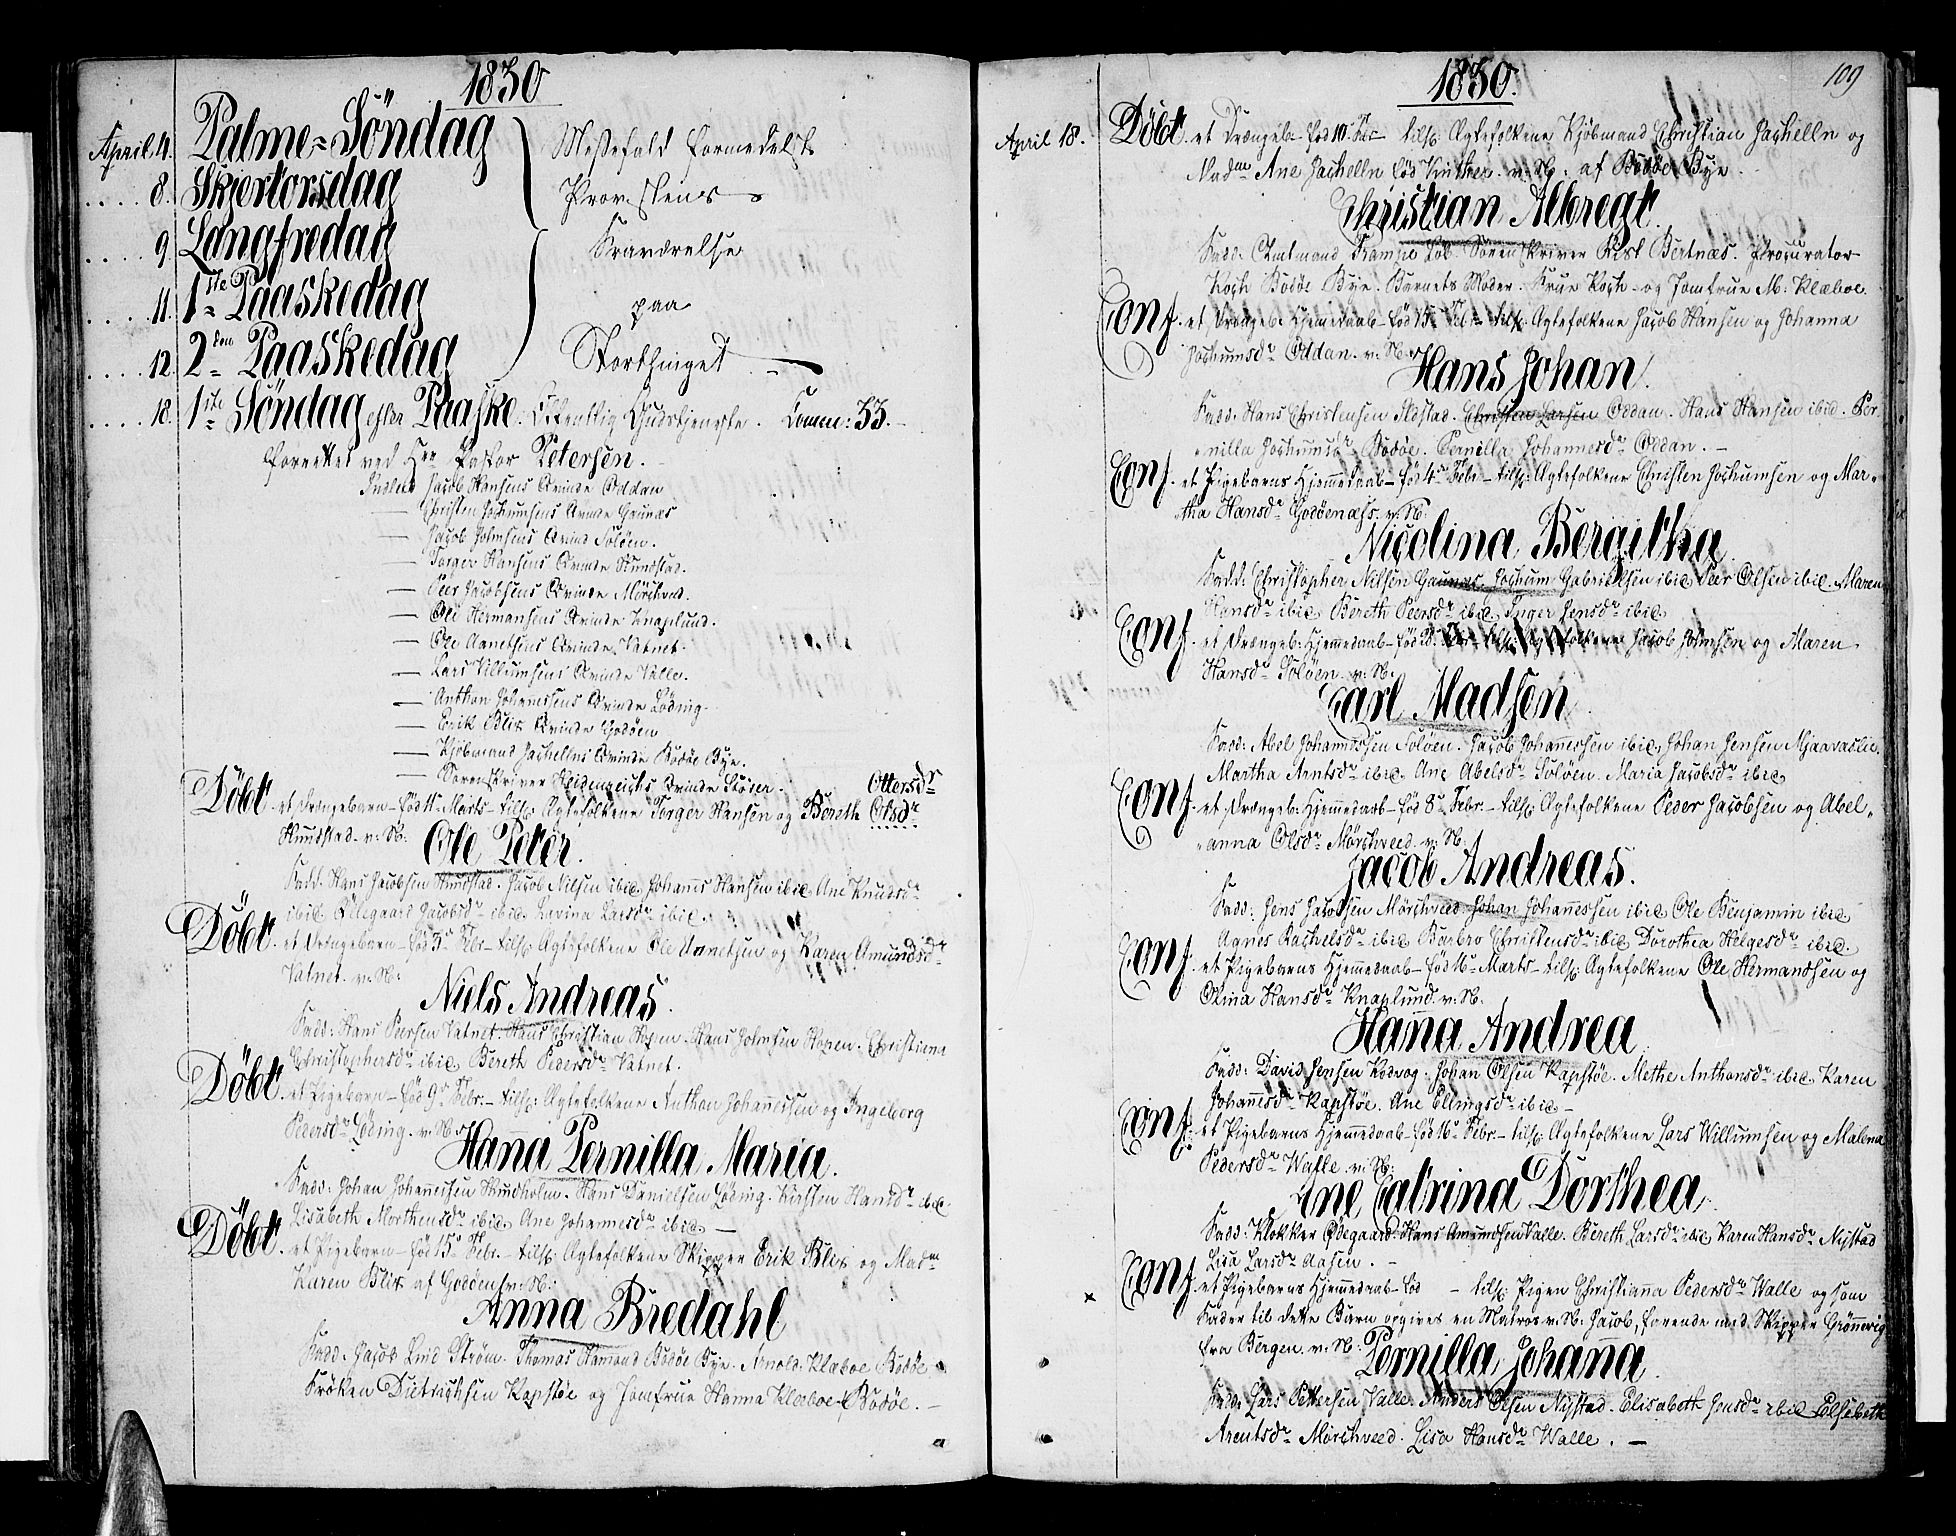 1830
April 4. Palme=Söndag Messefald formedelst
8. Skjertorsdag Provstens
9. Langfredag Fraværelse
11. 1ste Paaskedag paa
12. 2den Paaskedag Storthinget
18. 1ste Söndag efter Paaske. Offentlig Gudstjeneste. Comm: 33.
forrettet ved Hrr Pastor Petersen.
Indled Jacob Hansens Qvinde Oddan
— Christen Jochumsens Qvinde Gaunæs
— Jacob Johnsens Qvind Solöen.
— Torger Hansens Qvinde Hundstad.
— Peer Jacobsens Qvinde Mörchved.
— Ole Hermansens Qvinde Knaplund.
— Ole Anetsens Qvinde Vatnet.
— Lars Villumsens Qvinde Valle.
— Anthon Johannesens Qvinde Löding.
— Erik Blix Qvinde Godöen
— Kjöbmand Jachellns Qvinde Bodöe Bye.
— Sorenskriver Heidenreichs Qvinde Störer.
Ottersdr
Döbt et Drængebarn – föd 11 Marts – tilh: Ægtefolkene Torger Hansen og Bereth Olsdr
Hundstad. v: N:
Ole Peter.
Fadd: Hans Jacobsen Hundstad. Jacob Nilsen ibid. Johannes Hansen ibid Ane Knudsdr
ibid Ellegaard Jacobsdr ibid. Lavina Larsdr ibid
Döbt. et Drængebarn – föd 3 Febr – tilh: Ægtefolkene Ole Anetsen og Karen Amundsdr
Vatnet. v: N:
Niels Andreas.
Fadd: Hans Peersen Vatnet. Hans Christian Hopen. Hans Johnsen Hopen. Christiana
Christophersdr ibid. Bereth Pedersdr Vatnet.
Döbt. et Pigebarn – föd 9 Febr – tilh: Ægtefolkene Anthon Johannessen og Ingeberg
Pedersdr Löding. v: N:
Hanna Pernilla Maria.
Fadd: Johan Johannessen Hundholm. Hans Danielsen Löding. Kirsten Hansdr ibid.
Lisabeth Morthensdr ibid. Ane Johannesdr ibid. —
Döbt. et Pigebarn – föd 15 Febr – tilh: Ægtefolkene Skipper Erik Blix og Madm
Karen Blix af Godöen v: N:
Anna Bredahl
Fadd: Jacob Lind Ström. Thomas Hamond Bodöe Bye. Arnold Klæboe Bodöe
Fröken Dietrichsen Kapstöe og Jomfrue Hanna Klæboe Bodöe. —
1830.
109
April 18. Döbt et Drængeb. föd 10 tilh: Ægtefolkene Kjöbmand Christian Jachelln og
Madm Ane Jachelln föd v: N: af Bodöe Bye.
Christian Albregt
Fadd: Amtmand Sorenskriver Rist Bertnæs. Procurator
Koch Bodöe Bye. Barnets Moder. Frue Koch og Jomfrue M: Klæboe.
Conf. et Drængeb. Hjemmedaab – föd 13 Febr – tilh: Ægtefolkene Jacob Hansen og Johanna
Jochumsdr Oddan. v: N:
Hans Johan.
Fadd: Hans Christensen Alstad. Christen Larsen Oddan. Hans Hansen ibid. Per-
nilla Jochumsdr Bodöe. Pernilla Johannesdr Oddan. —
Conf. et Pigebarns Hjemmedaab – föd 4 Febr – tilh: Ægtefolkene Christen Jochumsen og Mar-
tha Hansdr Godöenæss. v: N:
Nicolina Bergitha
Fadd: Christopher Nilsen Gaunæs. Jochum Gabrielsen ibid Peer Olsen ibid. Maren
Hansdr ibid Bereth Peersdr ibid. Inger Jensdr ibid
Conf. et Drængeb: Hjemmedaab – föd tilh: Ægtefolkene Jacob Johnsen og Maren
Hansdr Solöen. v: N:
Carl Madsen
Fadd: Abel Johannessen Solöen. Jacob Johannessen ibid, Johan Jensen Mjaavaslie.
Martha Arntsdr ibid. Ane Abelsdr Solöen. Maria Jacobsdr ibid
Conf. et Drængeb: Hjemmedaab – föd 8 Febr – tilh: Ægtefolkene Peder Jacobsen og Abel-
anna Olsdr Mörchveed. v: N:
Jacob Andreas.
Fadd: Jens Jacobsen Mörchveed Johan Johannessen ibid Ole Benjamin ibid
Agnes Rachelsdr ibid Barbro Christensdr ibid Dorothea Helgesdr ibid.
Conf. et Pigebarns Hjemmedaab – föd 16 Marts – tilh: Ægtefolkene Ole Hermandsen og
Olina Hansdr Knaplund. v: N:
Hanna Andrea
Fadd: David Jensen Kodvog. Johan Olsen Kapstöe. Methe Anthonsdr ibid. Karen
Johannesdr Kapstöe. Ane Ellingsdr ibid. —
Conf. et Pigebarns Hjemmedaab – föd 16 Febr – tilh: Ægtefolkene Lars Willumsen og Malena
Pedersdr Walle. v: N:
Ane Catrina Dorthea
Fadd: Klokker Ödegaard. Hans Amundsen Valle. Bereth Larsdr ibid Karen Hansdr Nystad
Lisa Larsdr Aasen.
Conf. et Pigebarns Hjemmedaab – föd – tilh: Pigen Christianna Pedersdr Walle og som
Fader til dette Barn opgives en Matros v: N: Jacob, farende med Skipper Grönnevig
fra Bergen. v: N:
Pernilla Johanna
Fadd: Lars Pettersen Valle. Anders Olsen Nystad. Elisabeth Jensdr ibid Elsebeth
Arentsdr Mörchveed. Lisa Hansdr Walle. —